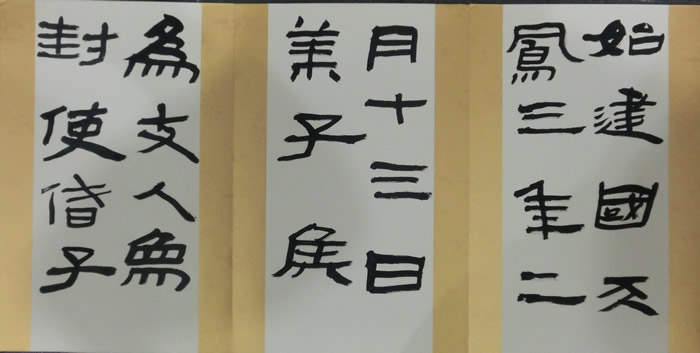 始建國天
鳳三年二
月十三日
萊子矦
為支人為
封使偖子